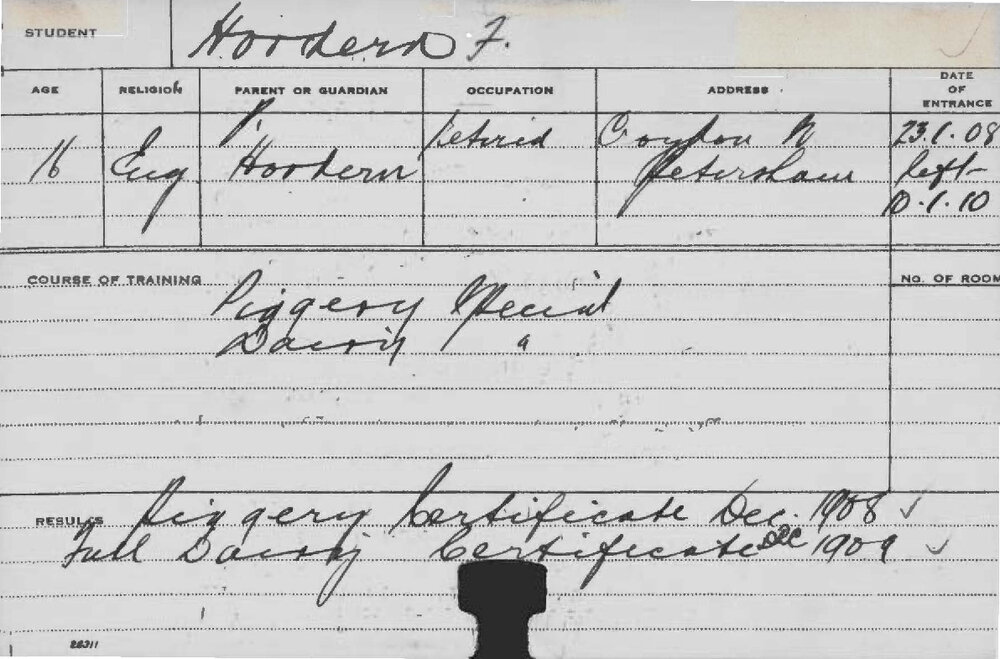 STUDENT Hoordern F.
AGE RELIGION PARENT OR GUARDIAN OCCUPATION ADDRESS DATE OF ENTRANCE
P. Retired Croydon N 23.1.08
16 Eng Hoordern Petersham left-
10.1.10
COURSE OF TRAINING Piggery Special NO. OF ROOM
Dairy "
RESULTS Piggery Certificate Dec. 1908 ✓
Full Dairy Certificate Dec 1909 ✓
26311